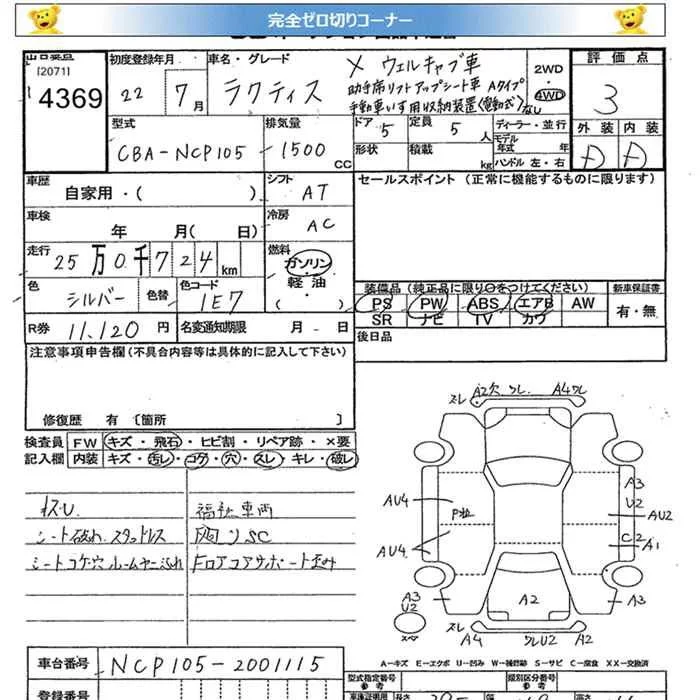 完全ゼロ切りコーナー
[2071]
4369
初度登録年月
22 7月
車名・グレード
ラクティス
× ウェルキャブ車
助手席リフトアップシート車 Aタイプ
手動車いす用収納装置(電動式)なし
2WD
4WD
評価点
3
外装 内装
D D
型式
CBA-NCP105
排気量
1500 CC
ドア 5
定員 5 人
ディーラー・並行
モデル年式 年
形状
積載 kg
ハンドル 左・右
車歴
自家用・( )
シフト
AT
セールスポイント (正常に機能するものに限ります)
車検
年 月( 日)
冷房
AC
走行
25万0千724km
燃料
ガソリン・軽油・( )
色
シルバー
色替
色コード
1E7
装備品(純正品に限り○をつけてください)
PS PW ABS エアB AW
SR ナビ TV カワ
新車保証書
有・無
R券 11,120円
名変通知期限 月 - 日
後日品
注意事項申告欄(不具合内容等は具体的に記入して下さい)
修復歴 有 〔箇所 〕
検査員記入欄
FW キズ・飛石・ヒビ割・リペア跡・×要
内装 キズ・汚レ・コゲ・穴・スレ・キレ・破レ
キズU 福祉車両
シート破れ スタッドレス
シートコゲ穴 ルームヤニ汚れ フロアコアサポート歪み
スレ A2 A4
AU4
AU4
A3
U2
AU2
C2
A1
A3
U2
A2
スレ A4 U2 A2
A-キズ E-エクボ U-凹み W-補修跡 S-サビ C-腐食 XX-交換済
車台番号 NCP105-2001115
登録番号
型式指定番号
類別区分番号
参考 参考